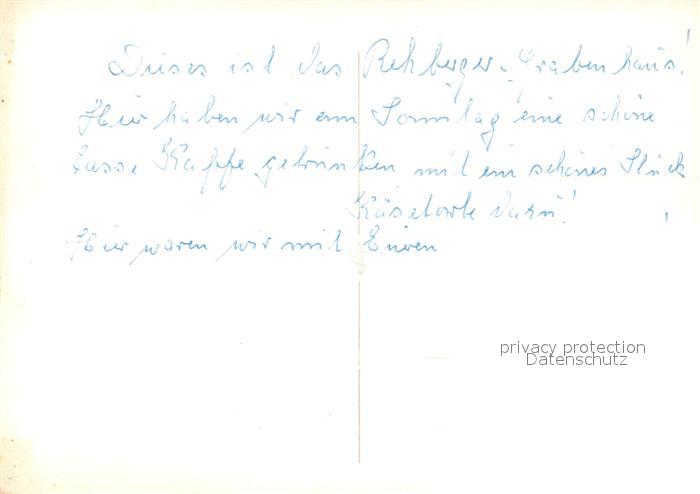 Dieses ist das Rehberger-Grabenhaus!
Hier haben wir am Sonntag eine schöne
tasse Kaffe getrunken mit ein schönes Stück
Käsetorte dazu!
Hier waren wir mit
privacy protection
Datenschutz